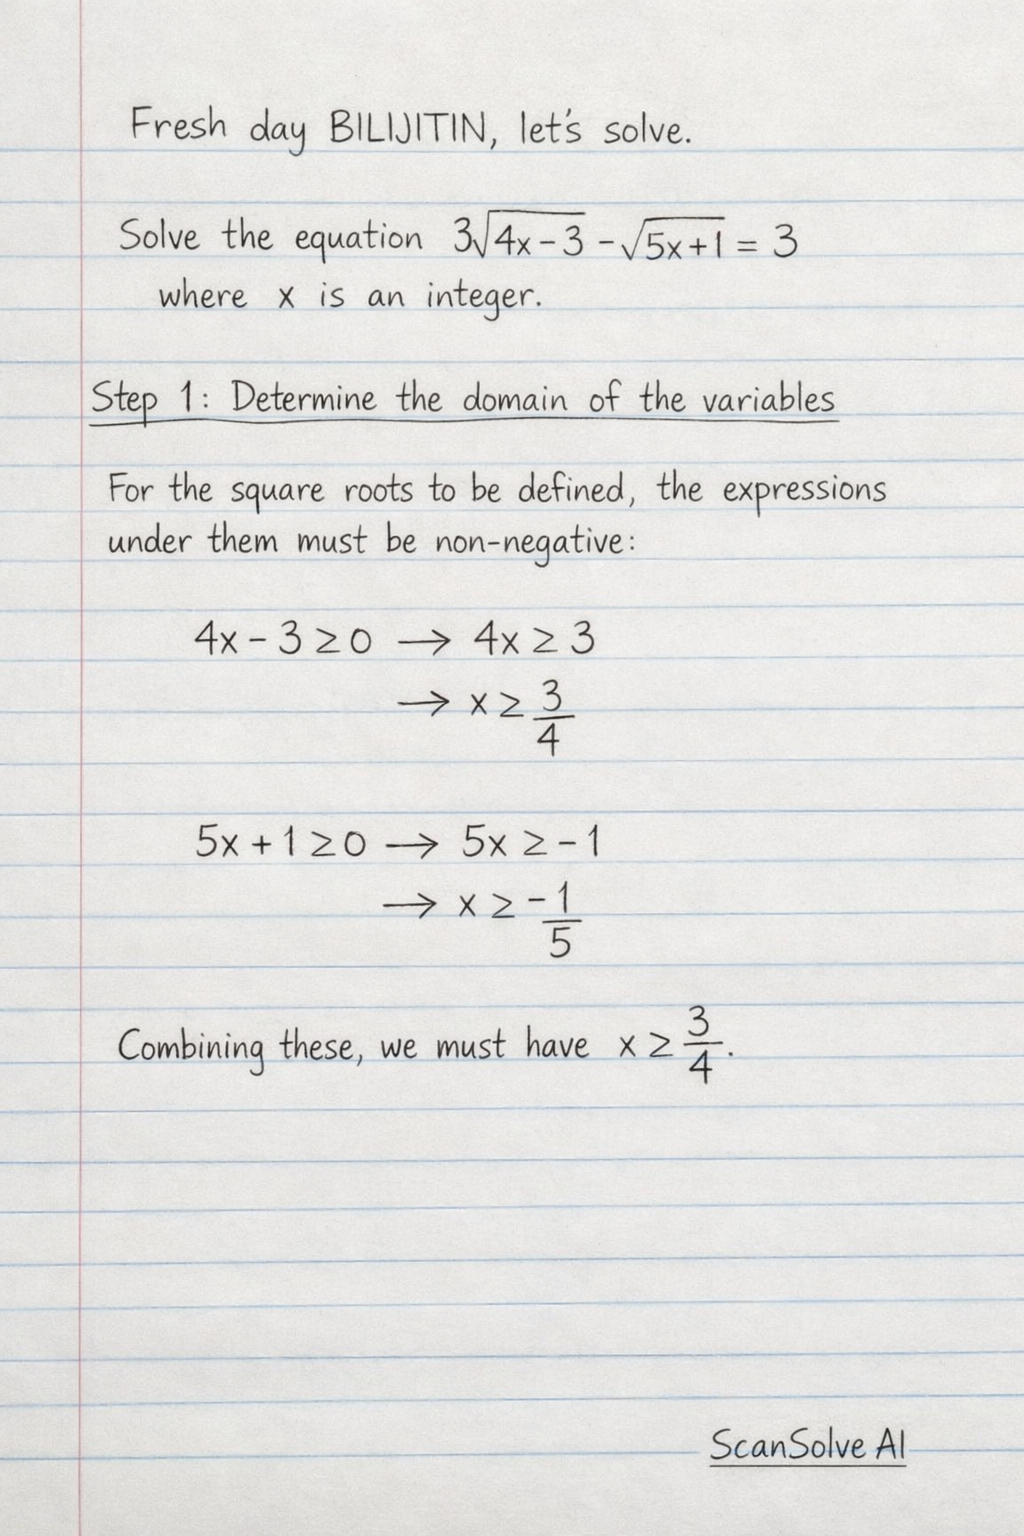 Fresh day BILIJITIN, let's solve.
Solve the equation 3√(4x-3) - √(5x+1) = 3
where x is an integer.
Step 1: Determine the domain of the variables
For the square roots to be defined, the expressions
under them must be non-negative:
4x - 3 ≥ 0 → 4x ≥ 3
→ x ≥ 3/4
5x + 1 ≥ 0 → 5x ≥ -1
→ x ≥ -1/5
Combining these, we must have x ≥ 3/4.
ScanSolve AI